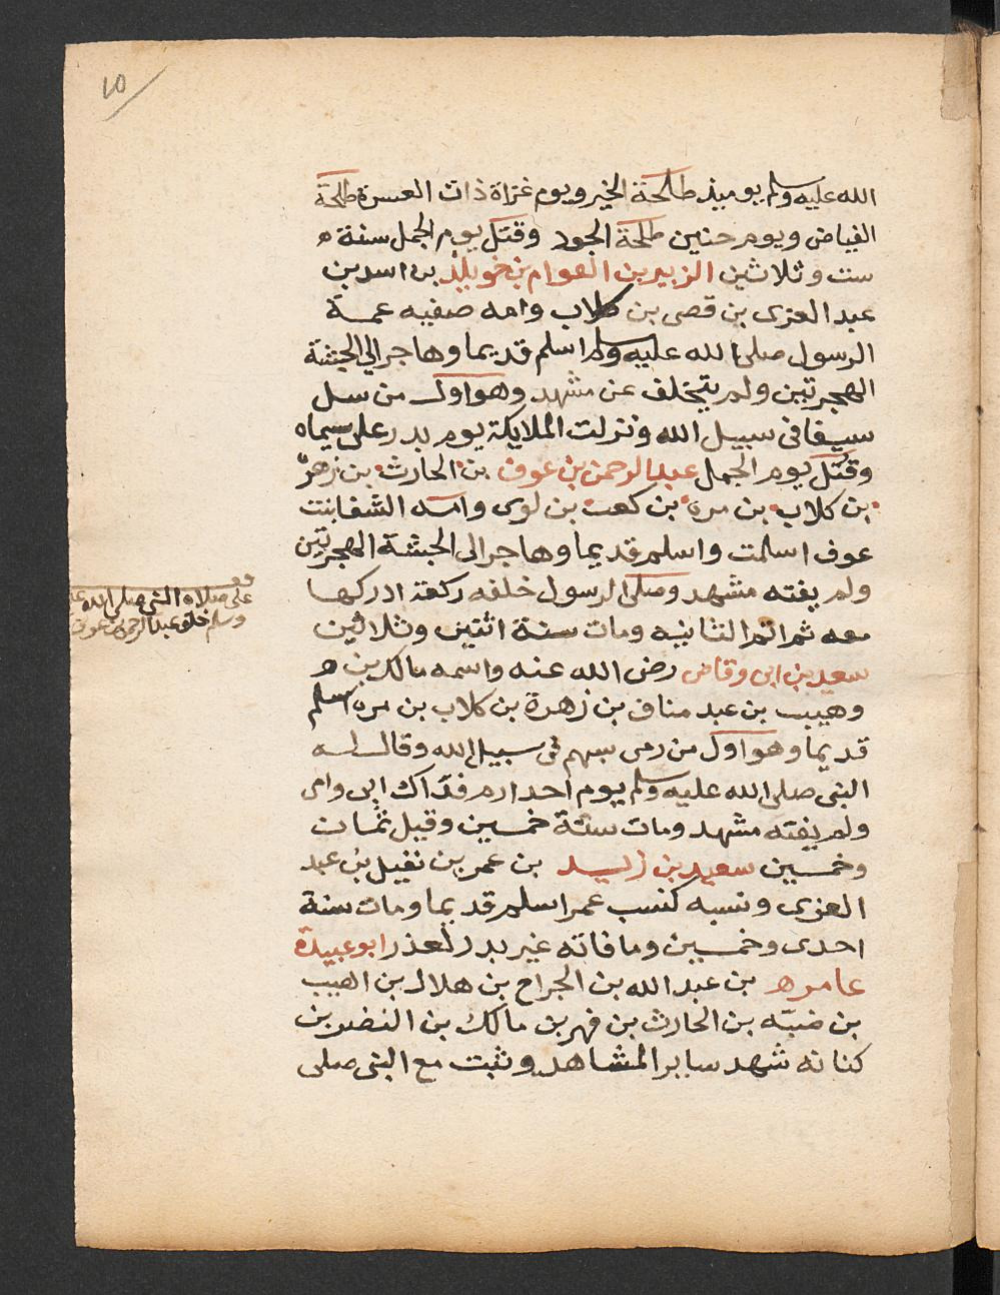 ١٥
الله عليه وسلم يوميذ طلحة الخير ويوم غزاة ذات العسرة طلحة
الفياض ويوم حنين طلحة الجود وقتل يوم الجمل سنة
ست وثلاثين الزبير بن العوام بن خويلد بن اسد بن
عبد العزى بن قصى بن كلاب وامه صفيه عمة
الرسول صلى الله عليه وسلم اسلم قديما وهاجر الى الحبشة
الهجرتين ولم يتخلف عن مشهد وهو اول من سل
سيفا فى سبيل الله ونزلت الملايكة يوم بدر على سيماه
وقتل يوم الجمل عبد الرحمن بن عوف بن الحارث بن زهرة
بن كلاب بن مرة بن كعب بن لوى وامه الشفا بنت
عوف اسلمت واسلم قديما وهاجر الى الحبشة الهجرتين
ولم يفته مشهد وصلى الرسول خلفه ركعة ادركها
معه ثم اتم الثانيه ومات سنة اثتين وثلاثين
سعيد بن ابى وقاص رضى الله عنه واسمه مالك بن
وهيب بن عبد مناف بن زهرة بن كلاب بن مره اسلم
قديما وهو اول من رمى بسهم فى سبيل الله وقال له
النبى صلى الله عليه وسلم يوم احد ارم فداك ابى وامى
ولم يفته مشهد ومات سنة خمسين وقيل ثمان
وخمسين سعيد بن زيد بن عمر بن نفيل بن عبد
العزى ونسبه كنسب عمر اسلم قديما ومات سنة
احدى وخمسين وما فاته غير بدر لعذر ابو عبيدة
عامر بن عبد الله بن الجراح بن هلال بن اهيب
بن ضبه بن الحارث بن فهر بن مالك بن النضر بن
كنانه شهد ساير المشاهد وثبت مع النبى صلى
على صلاه النبى صلى الله عليه
وسلم خلف عبد الرحمن بن عوف